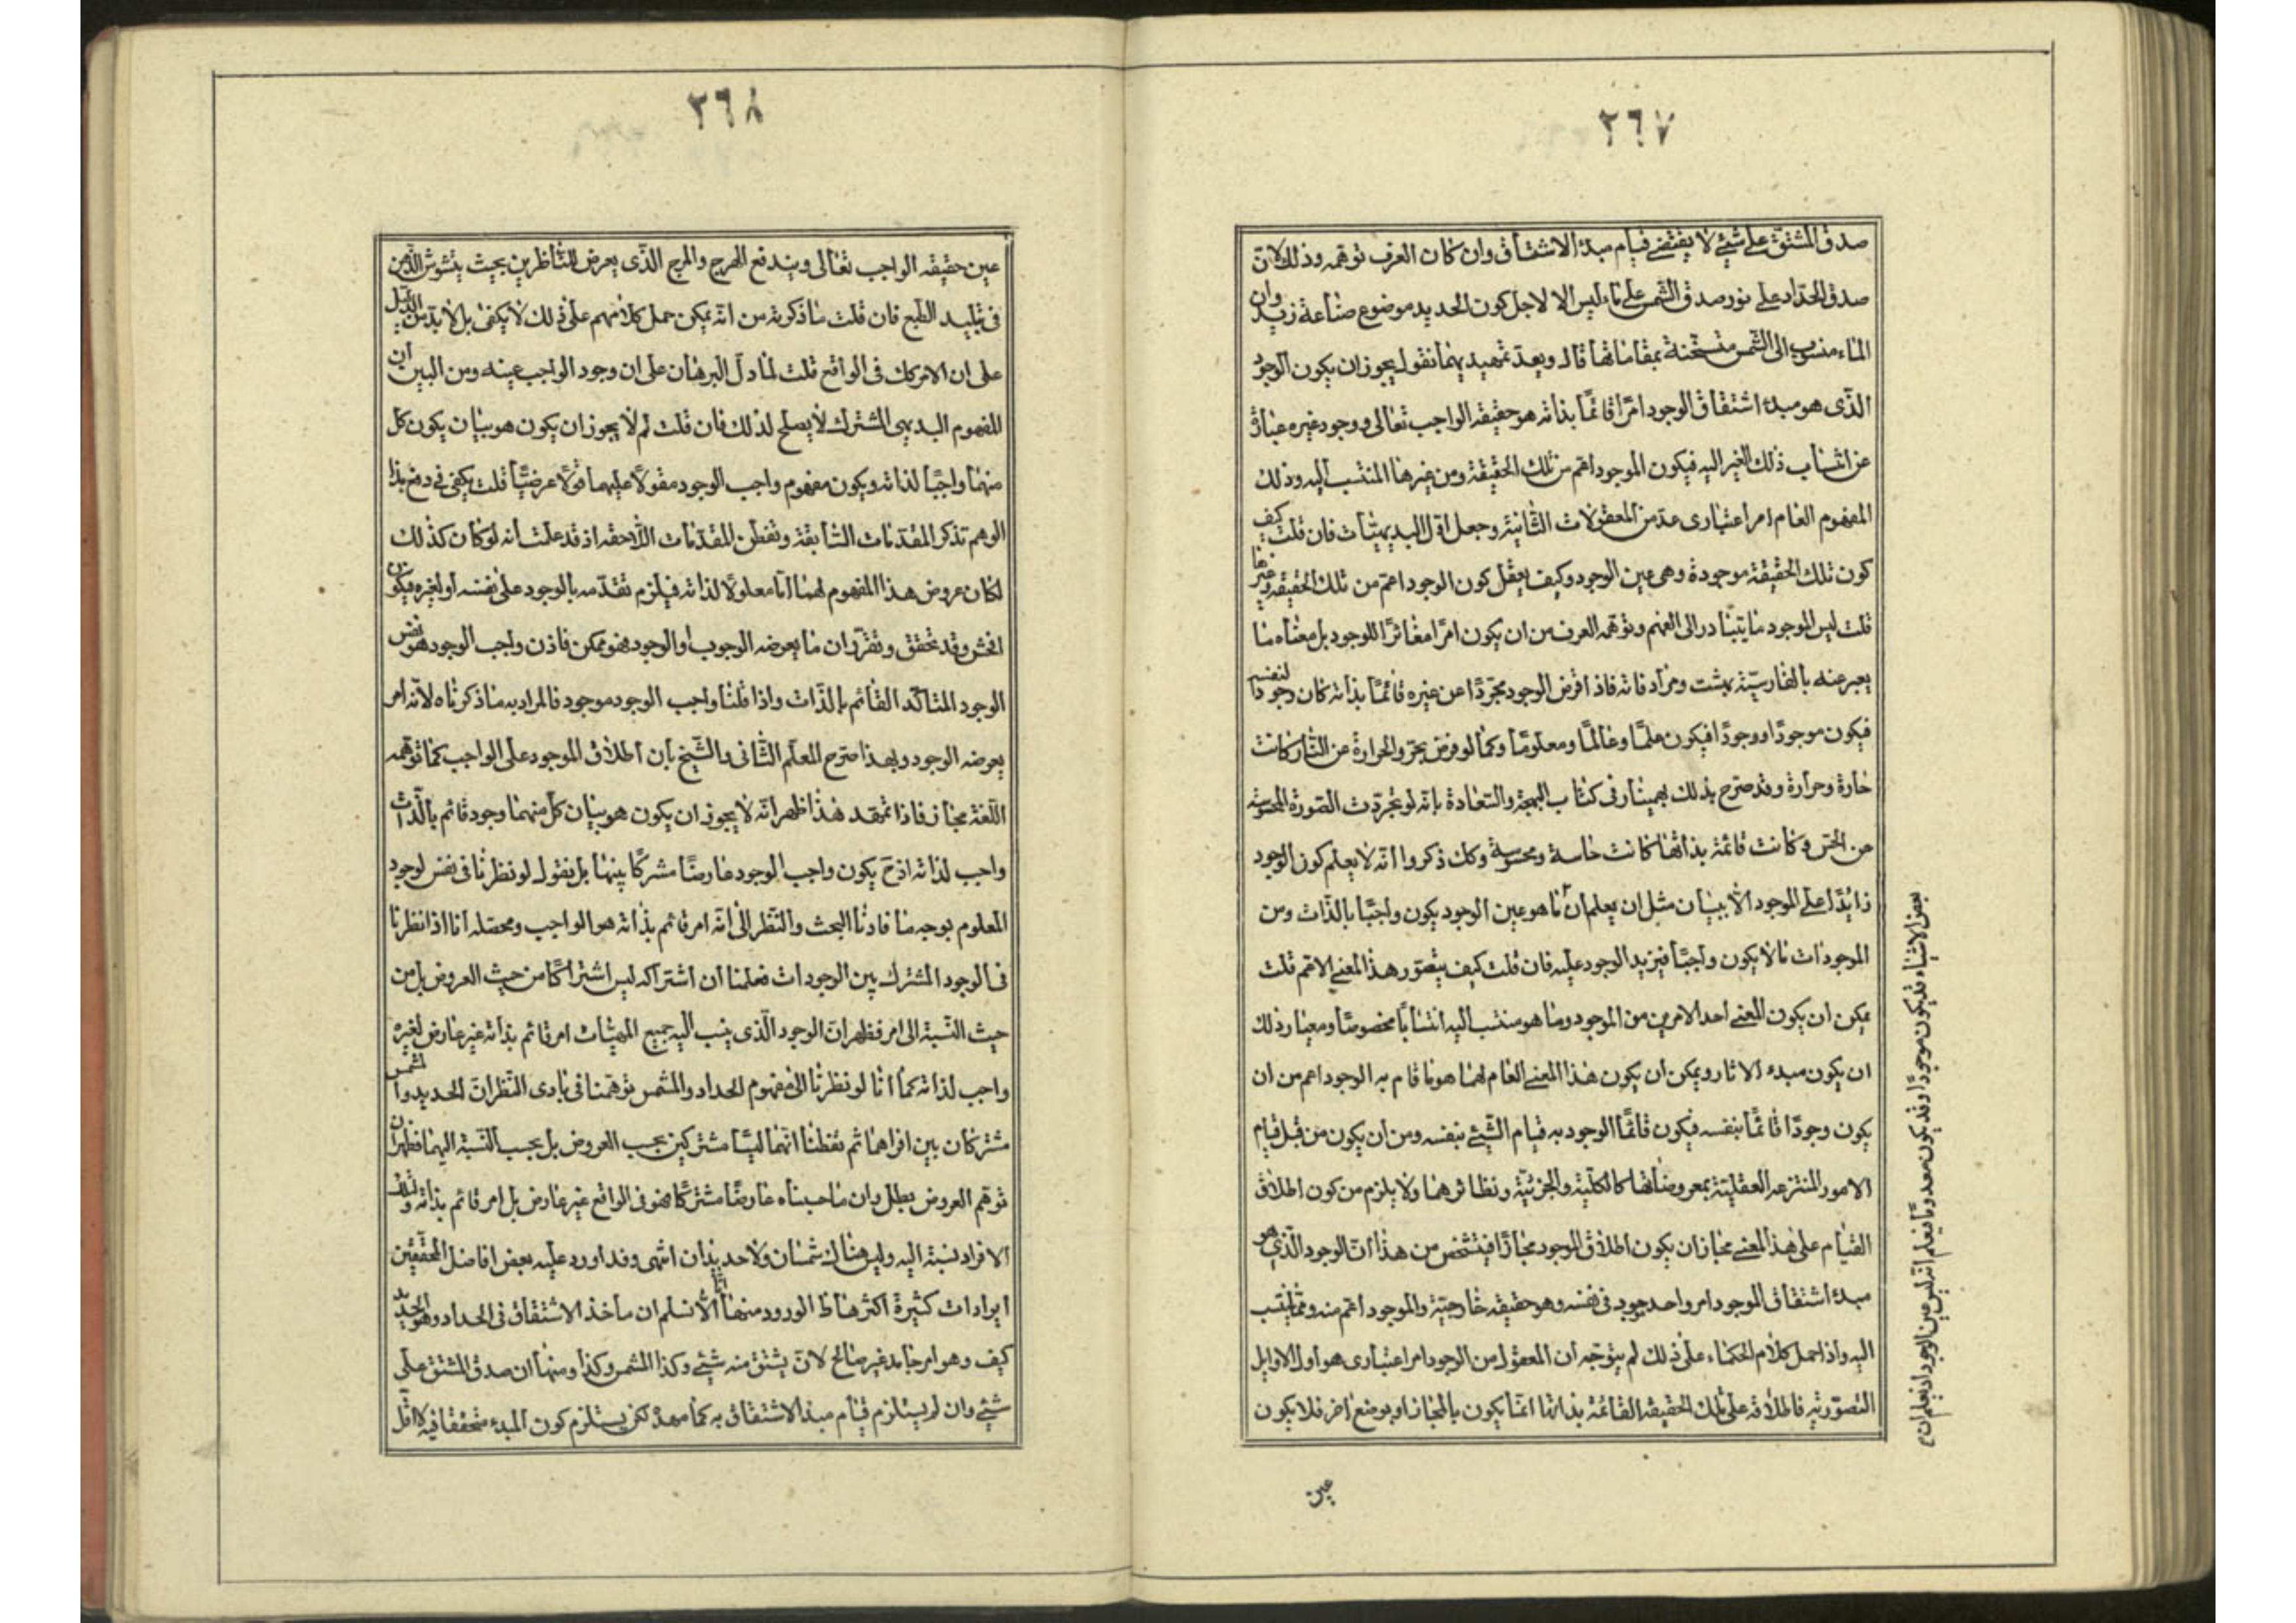 ٢٦٧
صدق المشتق على شئ لا يقتضى قيام مبدء الاشتقاق وان كان العرف توهمه وذلك لان
صدق الحداد على زيد وصدق الشمس على ماء ليس الا لاجل كون الحديد موضوع صناعة زيد وان
الماء منسوب الى الشمس متسخنة بمقاماتها قال وبعد تمهيدهما نقول يجوز ان يكون الوجود
الذى هو مبدء اشتقاق الوجود امرًا قائمًا بذاته هو حقيقة الواجب تعالى ووجود غيره عبارة
عن انتساب ذلك الغير اليه فيكون الموجود اعم من تلك الحقيقة ومن غيرها المنتسب اليه وذلك
المفهوم العام امر اعتبارى عد من المعقولات الثانية وجعل اول البديهيات فان قلت كيف
كون تلك الحقيقة موجودة وهى عين الوجود وكيف يعقل كون الوجود اعم من تلك الحقيقة وغيرها
قلت ليس الموجود ما يتبادر الى الفهم وتوهمه العرف من ان يكون امرًا مغائرًا للوجود بل معناه ما
يعبر عنه بالفارسية بهست ومرادفاته فاذا فرض الوجود مجردًا عن غيره قائمًا بذاته كان وجودا لنفسه
فيكون موجودًا ووجودًا فيكون علمًا وعالمًا ومعلومًا وكما لو فرض تجرد الحرارة عن النار كانت
حارة وحرارة وقد صرح بذلك بهمنيار فى كتاب البهجة والسعادة بانه لو تجردت الصورة المحسوسة
عن الحس وكانت قائمة بذاتها كانت حاسة ومحسوسة وكك ذكروا انه لا يعلم كون الوجود
زائدًا على الموجود الا ببيان مثل ان يعلم ان ما هو عين الوجود يكون واجبًا بالذات ومن
الموجودات ما لا يكون واجبًا فيزيد الوجود عليه فان قلت كيف يتصور هذا المعنى الاعم قلت
يمكن ان يكون المعنى احد الامرين من الموجود وما هو منتسب اليه انتسابًا مخصوصًا ومعيار ذلك
ان يكون مبدء الاثار ويمكن ان يكون هذا المعنى العام لهما هو ما قام به الوجود اعم من ان
يكون وجودًا قائمًا بنفسه فيكون قائمًا الوجود به قيام الشئ بنفسه ومن ان يكون من قبل قيام
الامور المنتزعه العقلية بمعروضاتها كالكلية والجزئية ونظائرهما ولا يلزم من كون اطلاق
القيام على هذا المعنى مجاز ان يكون اطلاق الوجود مجازًا فيتشخص من هذا ان الوجود الذى هو
مبدء اشتقاق الموجود امر واحد موجود فى نفسه وهو حقيقة خارجية والموجود اعم منه ومما ينتسب
اليه واذا حمل كلام الحكماء على ذلك لم يتوجه ان المعقول من الوجود امر اعتبارى هو اول الاوايل
التصورية فاطلاقه على تلك الحقيقة القائمة بذاتها انما يكون بالمجاز او بوضع اخر فلا يكون
عين
بعض الاشياء قد يكون موجودًا وقد يكون معدومًا فيعلم انه ليس عين الوجود او يعلم ان
٢٦٨
عين حقيقه الواجب تعالى ويندفع الهرج والمرج الذى يعرض للناظرين بحيث يتشوش الذهن
فى تبليد الطبع فان قلت ما ذكرته من انه يمكن حمل كلامهم على ذلك لا يكفى بل لا بد من الدليل
على ان الامر كك فى الواقع قلت لما دل البرهان على ان وجود الواجب عينه ومن البين ان
المفهوم البديهى المشترك لا يصلح لذلك فان قلت لم لا يجوز ان يكون هويتان يكون كل
منهما واجبًا لذاته ويكون مفهوم واجب الوجود مقولًا عليهما قولًا عرضيًا قلت يكفى فى دفع هذا
الوهم تذكر المقدمات السابقة وتفطن للمقدمات اللاحقه اذ قد علمت انه لو كان كذلك
لكان عروض هذا المفهوم لهما اما معلولًا لذاته فيلزم تقدمه بالوجود على نفسه او لغيره فيكون
افحش وقد تحقق وتقرر ان ما يعرضه الوجوب او الوجود هو ممكن فاذن واجب الوجود هو نفس
الوجود المتاكد القائم بالذات واذا قلنا واجب الوجود موجود فالمراد به ما ذكرناه لا انه امر
يعرضه الوجود وبهذا صرح المعلم الثانى والشيخ بان اطلاق الموجود على الواجب كما توهمه
اللغة مجاز فاذا تمهد هذا ظهر انه لا يجوز ان يكون هويتان كل منهما وجود قائم بالذات
واجب لذاته اذ ح يكون واجب الوجود عارضًا مشتركًا بينهما بل نقول لو نظرنا فى نفس الوجود
المعلوم بوجه ما قادنا البحث والنظر الى انه امر قائم بذاته هو الواجب ومحصله انا اذا نظرنا
فى الوجود المشترك بين الوجودات فعلمنا ان اشتراكه ليس اشتراكًا من حيث العروض بل من
حيث النسبة الى امر فظهر ان الوجود الذى ينسب اليه جميع المهيات امر قائم بذاته غير عارض لغيره
واجب لذاته كما انا لو نظرنا الى مفهوم الحداد والمشمس توهمنا فى بادى النظر ان الحديد والشمس
مشتركان بين افراهما ثم تفطنا انهما ليسا مشتركين بحسب العروض بل بحسب النسبة اليهما فظهر ان
توهم العروض بطل وان ما حسبناه عارضًا مشتركًا هو فى الواقع غير عارض بل امر قائم بذاته وتلك
الافراد نسبة اليه وليس هناك شمسان ولا حديدان انتهى وقد اورد عليه بعض افاضل المحققين
ايرادات كثيرة اكثرها ظ الورود منها انا لا نسلم ان ماخذ الاشتقاق فى الحداد وهو الحديد
كيف وهو امر جامد غير صالح لان يشتق منه شئ وكذا المشمس وكذا ومنها ان صدق المشتق على
شئ وان لم يستلزم قيام مبدء الاشتقاق به كما مهد لكن يستلزم كون المبدء متحققا فيه لا اقل